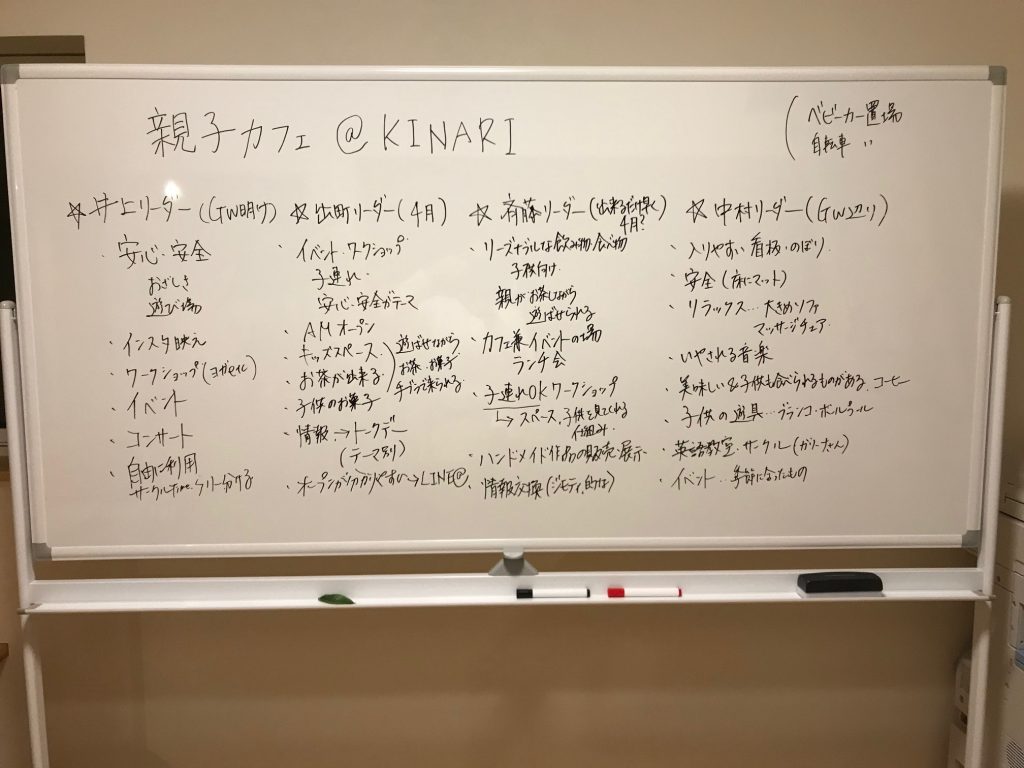 親子カフェ @KINARI
ベビーカー置場
自転車 〃
☆井上リーダー(GW明け)
・安心・安全
おざしき
遊び場
・インスタ映え
・ワークショップ(ヨガetc)
・イベント
・コンサート
・自由に利用
サークル
☆出町リーダー(4月)
・イベント・ワークショップ
子連れ
安心・安全がテーマ
・AMオープン
・キッズスペース
・お茶が出来る
遊ばせながら
お茶・お菓子
手ブラで来られる
・子供のお菓子
・情報→トークデー
(テーマ別)
・オープンが分かりやすい→LINE@
☆斉藤リーダー(出来るだけ早く
4月?
・リーズナブルな飲み物・食べ物
子供向け
親がお茶しながら
遊ばせられる
・カフェ兼イベントの場
ランチ会
・子連れOKワークショップ
↳スペース、子供を見てくれる
仕組み
・ハンドメイド作品の販売・展示
・情報交換(ジモティ的な)
☆中村リーダー(GW辺り)
・入りやすい看板・のぼり
・安全(床にマット)
・リラックス…大きめソファ
マッサージチェア
・いやされる音楽
・美味しい&子供も食べられるものがある、コーヒー
・子供の道具…ブランコ・ボールプール
・英語教室・サークル
・イベント…季節になったもの